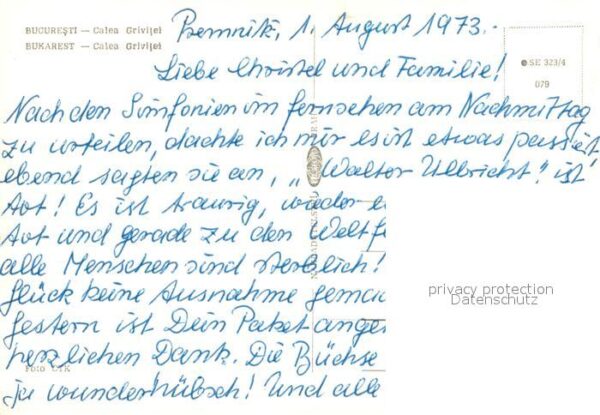 BUCUREȘTI — Calea Griviței
BUKAREST — Calea Griviței
Premnitz, 1. August 1973.-
SE 323/4
079
Liebe Christel und Familie!
Nach den Sinfonien im Fernsehen am Nachmittag
zu urteilen, dachte ich mir es ist etwas passiert,
ebend sagten sie an, „Walter Ulbricht" ist
Tot! Es ist traurig, wieder
Tot und gerade zu den
alle Menschen sind sterblich!
Glück keine Ausnahme
Gestern ist Dein Paket
herzlichen Dank. Die Büchse
ja wunderhübsch! Und alle
privacy protection
Datenschutz